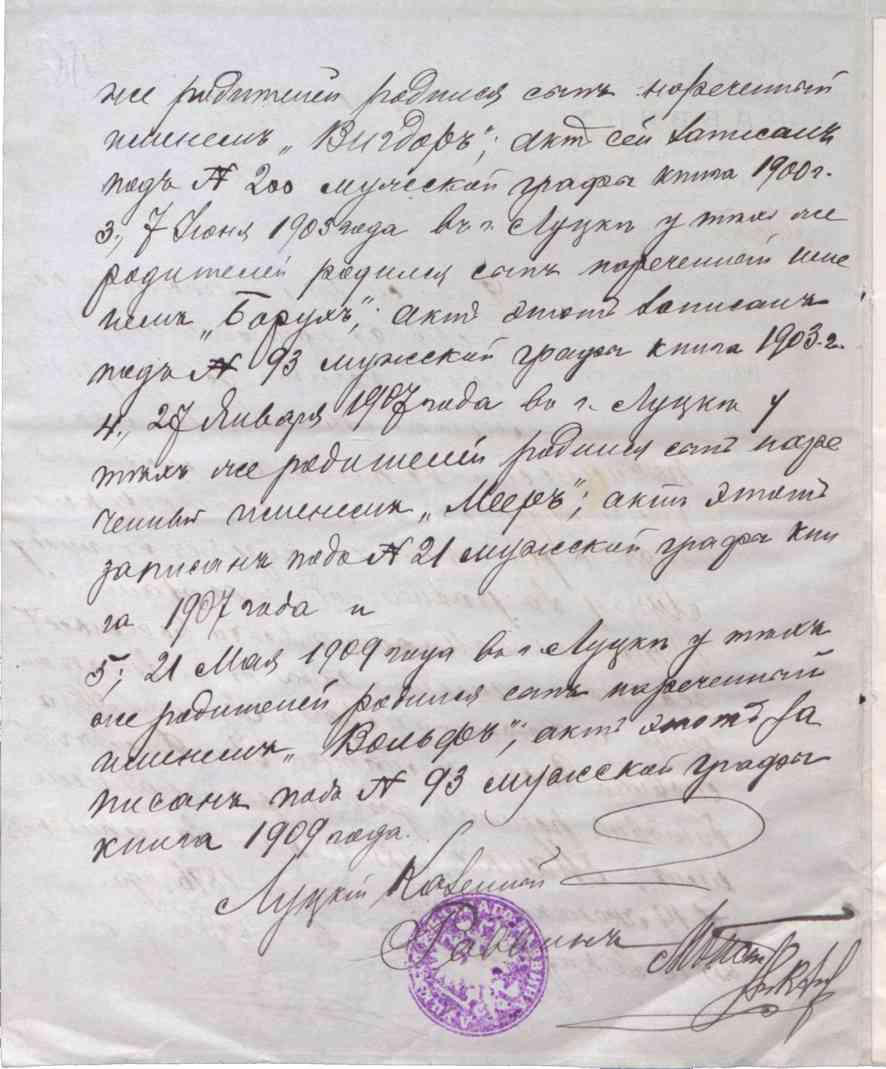 же родителей родился сынъ нареченный
именемъ „Вигдоръ“; актъ сей записанъ
подъ № 200 мужской графы книга 1900 г.
3., 7 Іюня 1903 года въ г. Луцкѣ у тѣхъ же
родителей родился сынъ нареченный име
немъ „Борухъ“; актъ этотъ записанъ
подъ № 93 мужской графы книга 1903 г.
4., 27 Января 1907 года въ г. Луцкѣ у
тѣхъ же родителей родился сынъ наре
ченный именемъ „Мееръ“; актъ этотъ
записанъ подъ № 21 мужской графы кни
га 1907 года и
5., 21 Мая 1909 года въ г. Луцкѣ у тѣхъ
же родителей родился сынъ нареченный
именемъ „Вольфъ“; актъ этотъ за
писанъ подъ № 93 мужской графы
книга 1909 года.
Луцкій Казенный
Раввинъ